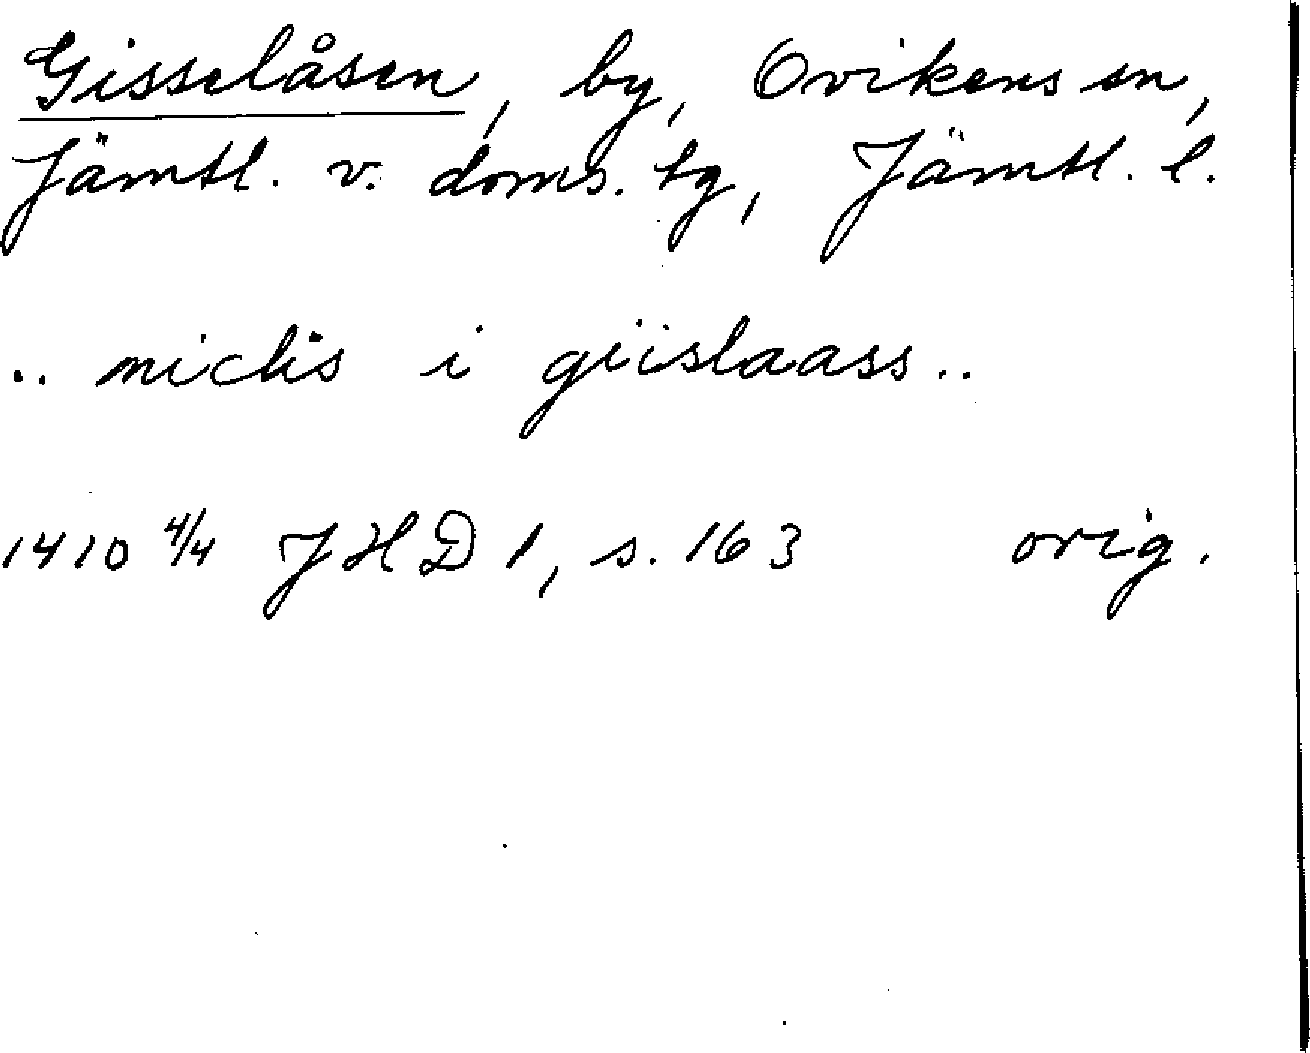 Gisselåsen, by, Ovikens sn,
Jämtl. v. doms. tg, Jämtl. l.
.. niclis i giislaass ..
1410 4/4 JHD 1, s. 163 orig.